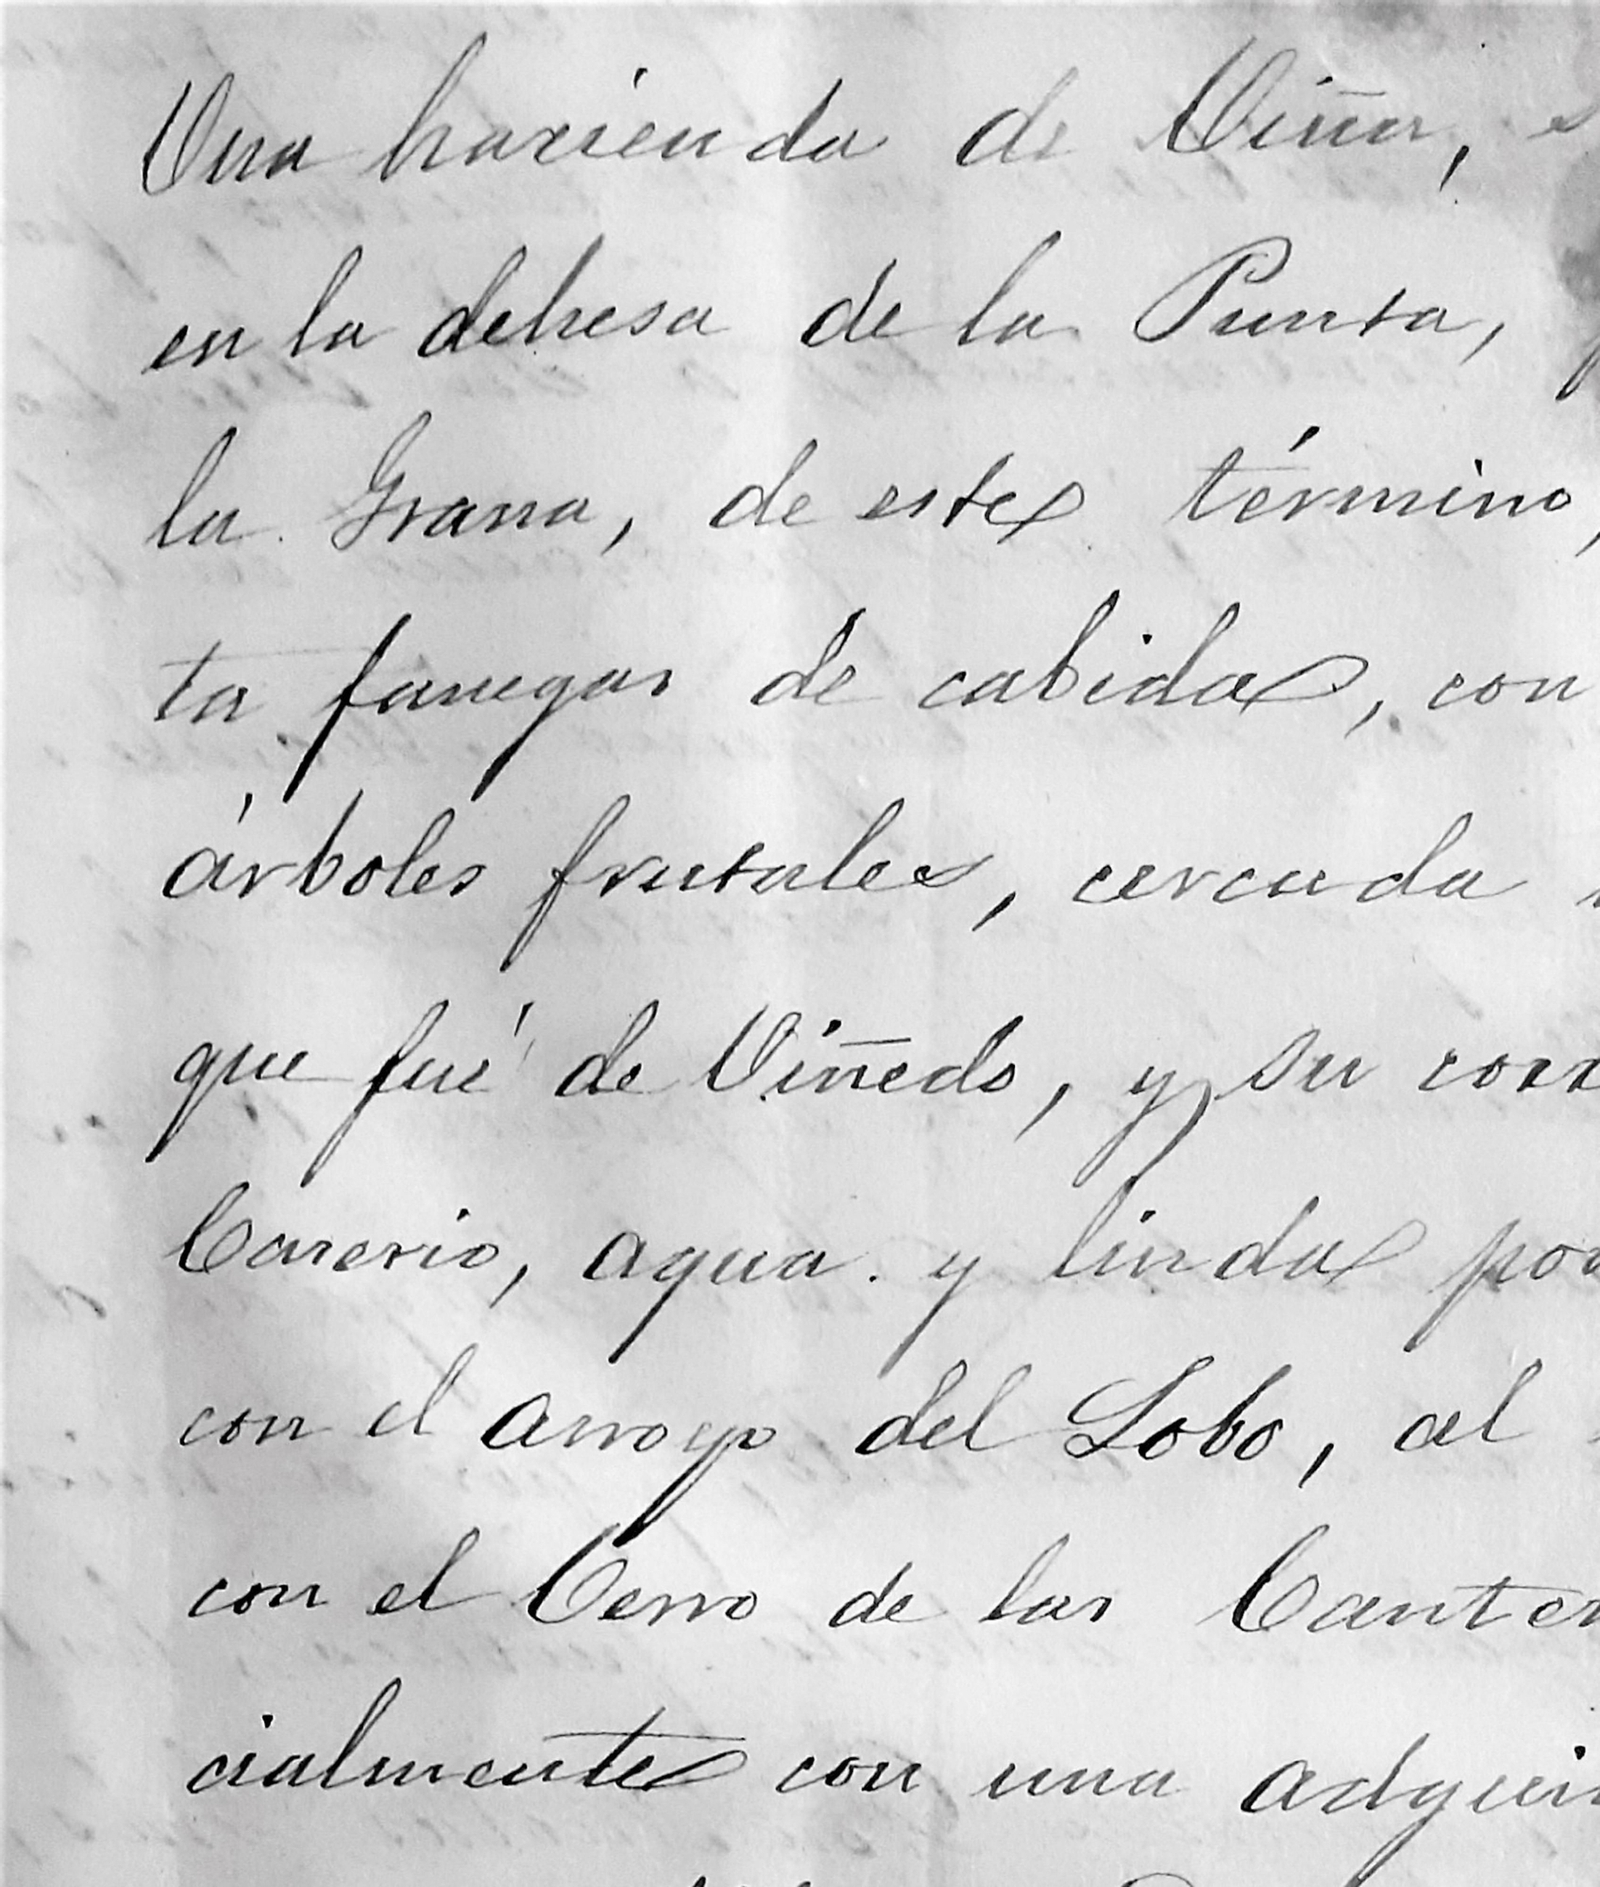 Una hacienda de Viña,
en la dehesa de la Punta,
la Grana, de este término,
ta fanegas de cabida, con
árboles frutales, cercada
que fué de Viñedo, y su corr
Caserio, agua y linda por
con el arroyo del Lobo, al
con el Cerro de las Canter
cialmente con una adqui